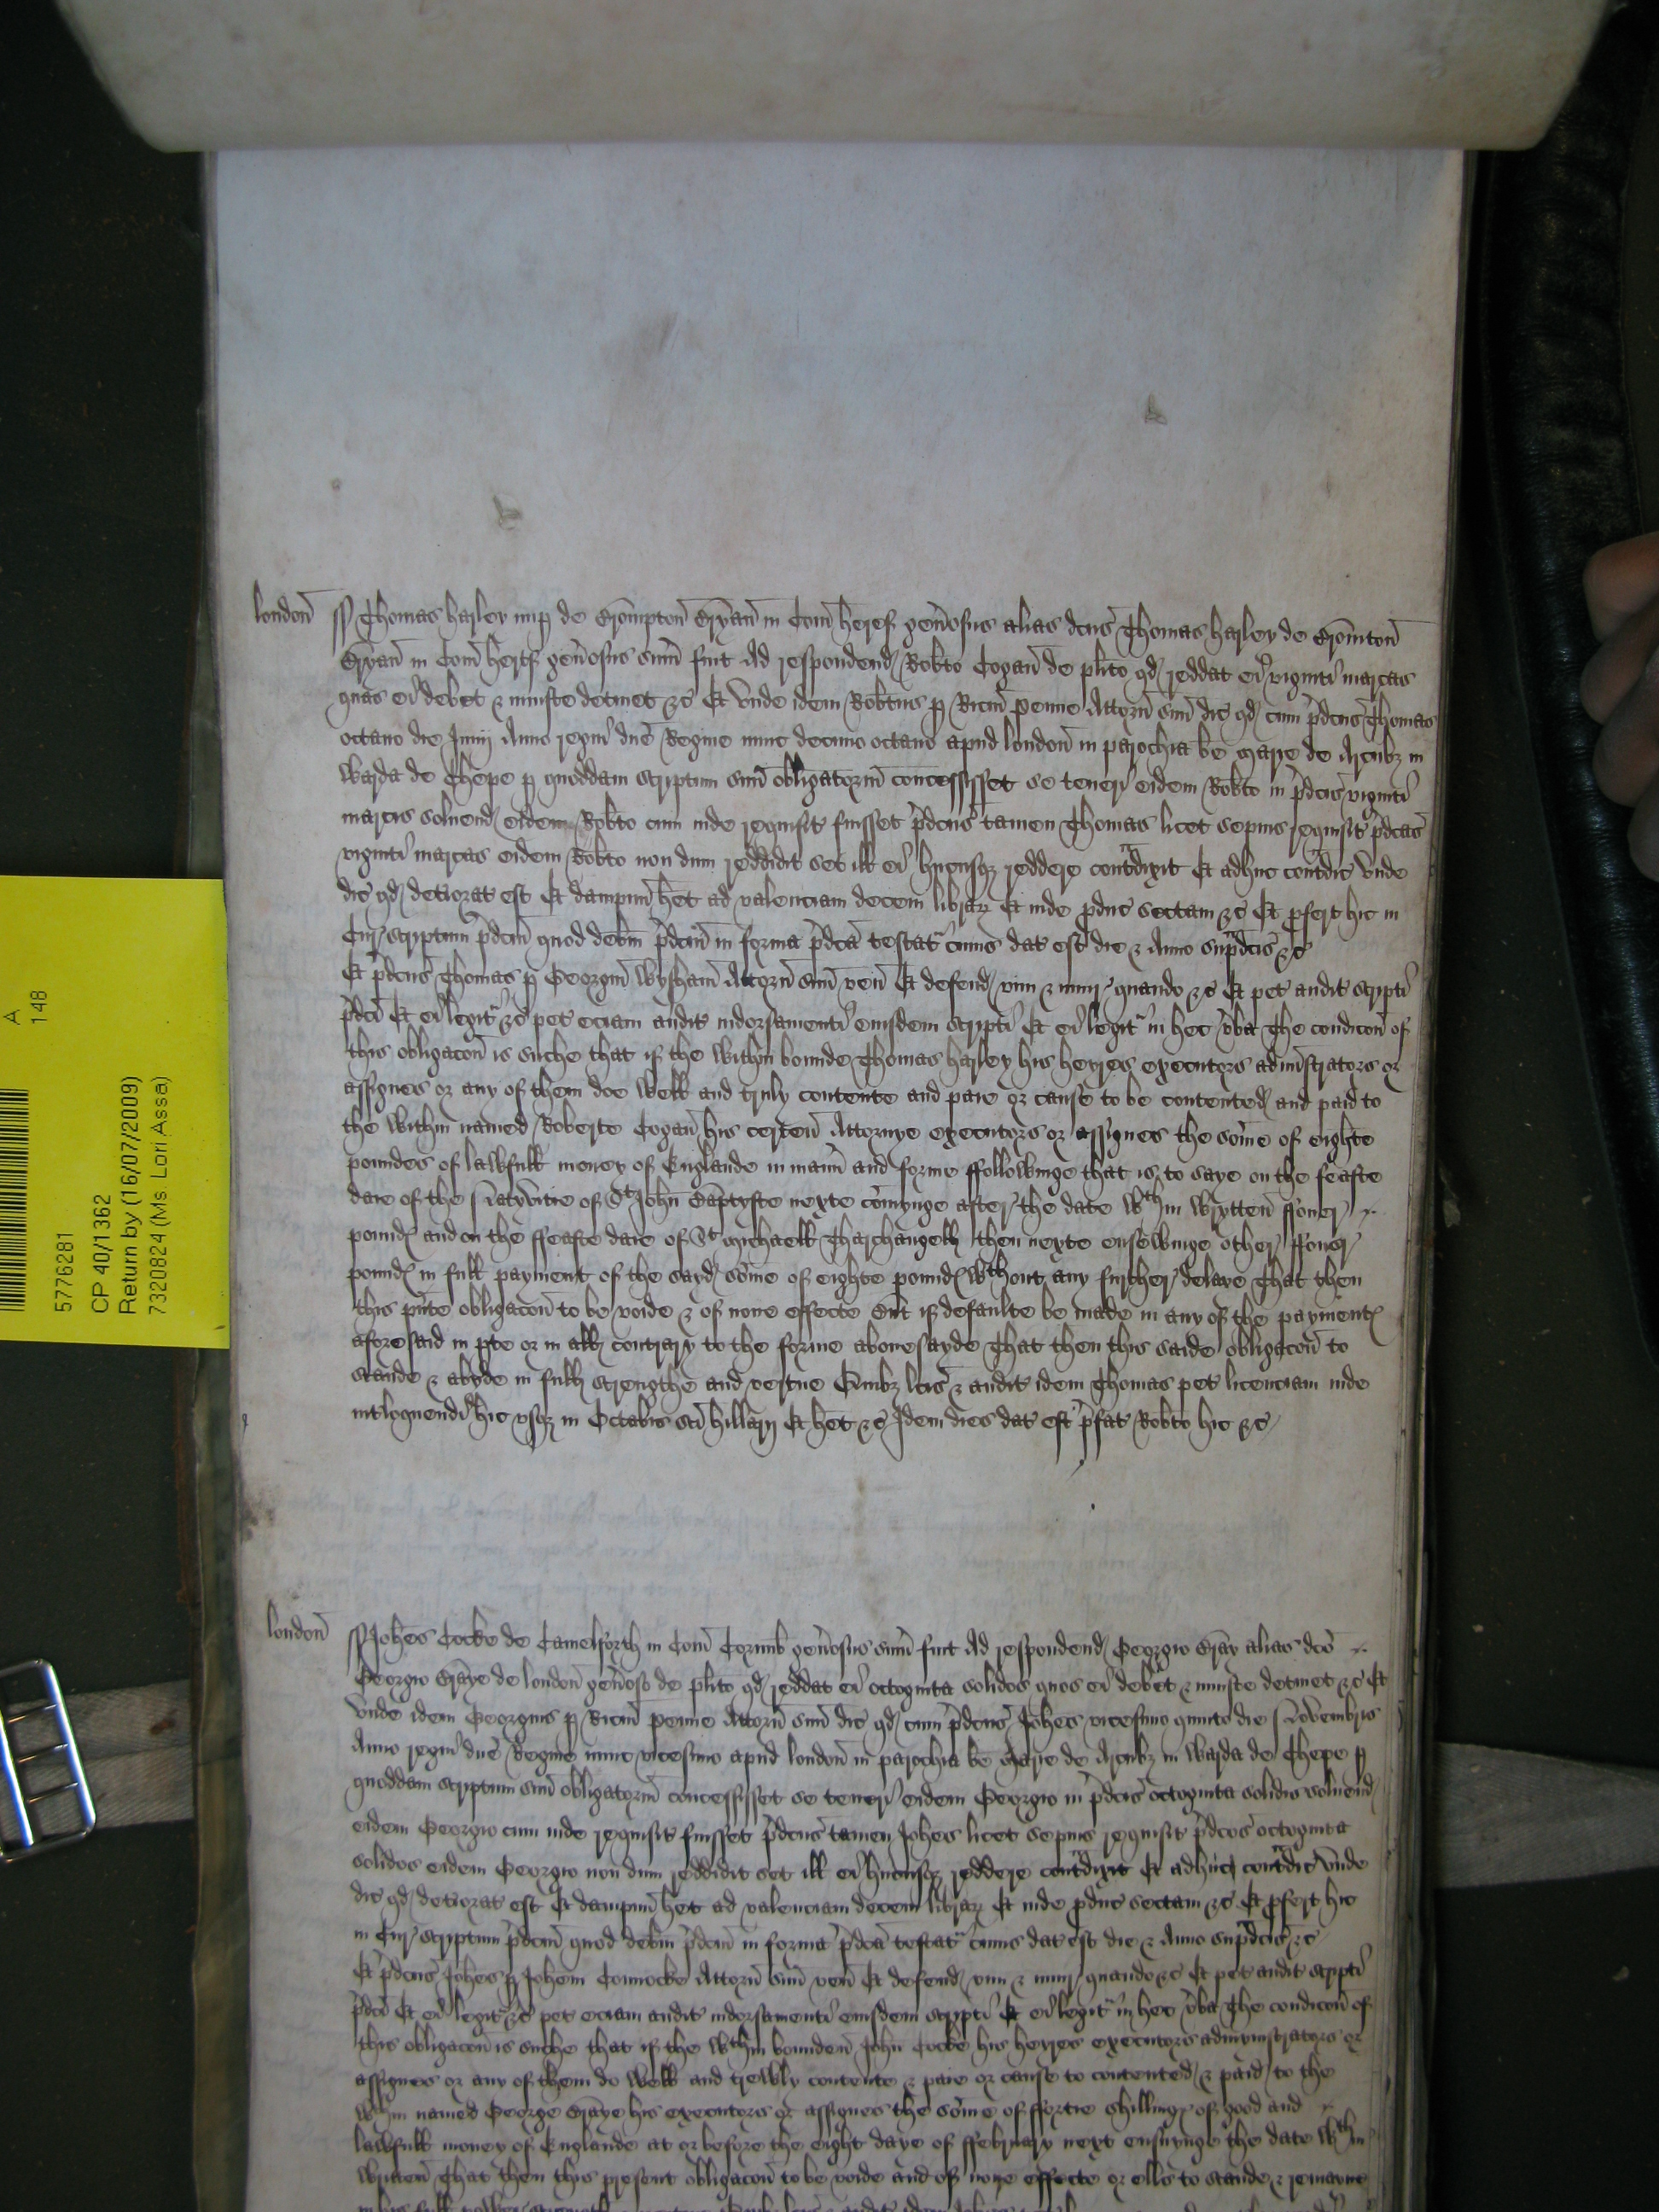 A
148
5776281
CP 40/1362
Return by (16/07/2009)
7320824 (Ms. Lori Assa)
london ss Thomas harley nup de Brompton Bryan in Com heref genosus alias dcus Thomas harley de Bromton
Bryan in Com herff genosus sum fuit Ad respondend Robto Cogan de plito qd reddat ei viginti marcas
quas ei debet & iniuste detinet &c Et vnde idem Robtus p Ricm penne Attorn suu dic qd cum pdcus Thomas
octauo die Junij Anno regni dne Regine nunc decimo octauo apud london in parochia be Marie de Arcubz in
Warda de Chepe p quoddam scriptum suu obligatoriu concessisset se teneri eidem Robto in pdcis viginti
marcis soluend eidem Robto cum inde requisit fuisset pdcus tamen Thomas licet sepius requisit pdcas
viginti marcas eidem Robto non dum reddidit set ill ei hucusqz reddere contradixit Et adhuc contradic vnde
dic qd deteriorat est Et dampnu het ad valenciam decem librar Et inde pduc sectam &c Et pfert hic in
Cur scriptum pdcm quod debm pdcm in forma pdca testat cuius dat est die & Anno supadcis &c
Et pdcus Thomas p Georgiu Wysham Attorn suu ven Et defend vim & iniur quando &c Et pet audit scripti
pdci Et ei legit &c pet eciam audit indorsamenti eiusdem scripti Et ei legit in hec vba The condicon of
this obligacon is suche that if the within bounde Thomas harley his heyres executors administrators or
assignes or any of them doe well and truly contente and paie or cause to be contented and paid to
the within named Roberte Cogan his certen Attornye executors or assignes the some of eighte
poundes of lawfull money of Englande in mann and forme ffollowinge that is to saye on the feaste
daie of the Natyvitie of St John Baptyste nexte comynge after the date wthin wrytten ffoner
pounds and on the ffeaste daie of St michaell Tharchangell then nexte ensewinge other ffoner
pounds in full payment of the sayd some of eighte pounds wthout any further delaye That then
this pnte obligacon to be voide & of none effecte But if defaulte be made in any of the payments
aforesaid in pte or in all contrary to the forme abouesayde That then this saide obligacon to
stande & abyde in full strengthe and vertue Quibz lcis & audit idem Thomas pet licenciam inde
intloquendi hic vsqz in Octabis sci hillarij Et het &c Idem dies dat est pfat Robto hic &c
london ss Johes Cocke de Camelforth in Com Cornub genosus sum fuit Ad respondend Georgio Graye alias dco
Georgio Graye de london genoso de plito qd reddat ei octoginta solidos quos ei debet & iniuste detinet &c Et
vnde idem Georgius p Ricm penne Attorn suu dic qd cum pdcus Johes vicesimo quinto die Novembris
Anno regni dne Regine nunc vicesimo apud london in parochia be Marie de Arcubz in warda de Chepe p
quoddam scriptum suu obligatoriu concessisset se teneri eidem Georgio in pdcis octoginta solidis soluend
eidem Georgio cum inde requisit fuisset pdcus tamen Johes licet sepius requisit pdcos octoginta
solidos eidem Georgio non dum reddidit set ill ei hucusqz reddere contradixit Et adhuc contradic vnde
dic qd deteriorat est Et dampnu het ad valenciam decem librar Et inde pduc sectam &c Et pfert hic
in Cur scriptum pdcm quod debm pdcm in forma pdca testat cuius dat est die & Anno supadcis &c
Et pdcus Johes p Johem Connocke Attorn suu ven Et defend vim & iniur quando &c Et pet audit scripti
pdci Et ei legit &c pet eciam audit indorsamenti eiusdem scripti Et ei legit in hec vba The condicon of
this obligacon is suche that if the wthin bounden John Cocke his heyres executors admynistrators or
assignes or any of them do well and trewly contente & paie or cause to contented & paid to the
wthin named George Graye his executors or assignes the some of ffortie shillings of good and
lawfull money of Englande at or before the eight daye of ffebruary next ensuynge the date wthin
written That then this present obligacon to be voide and of none effecte or ells to stande & remayne